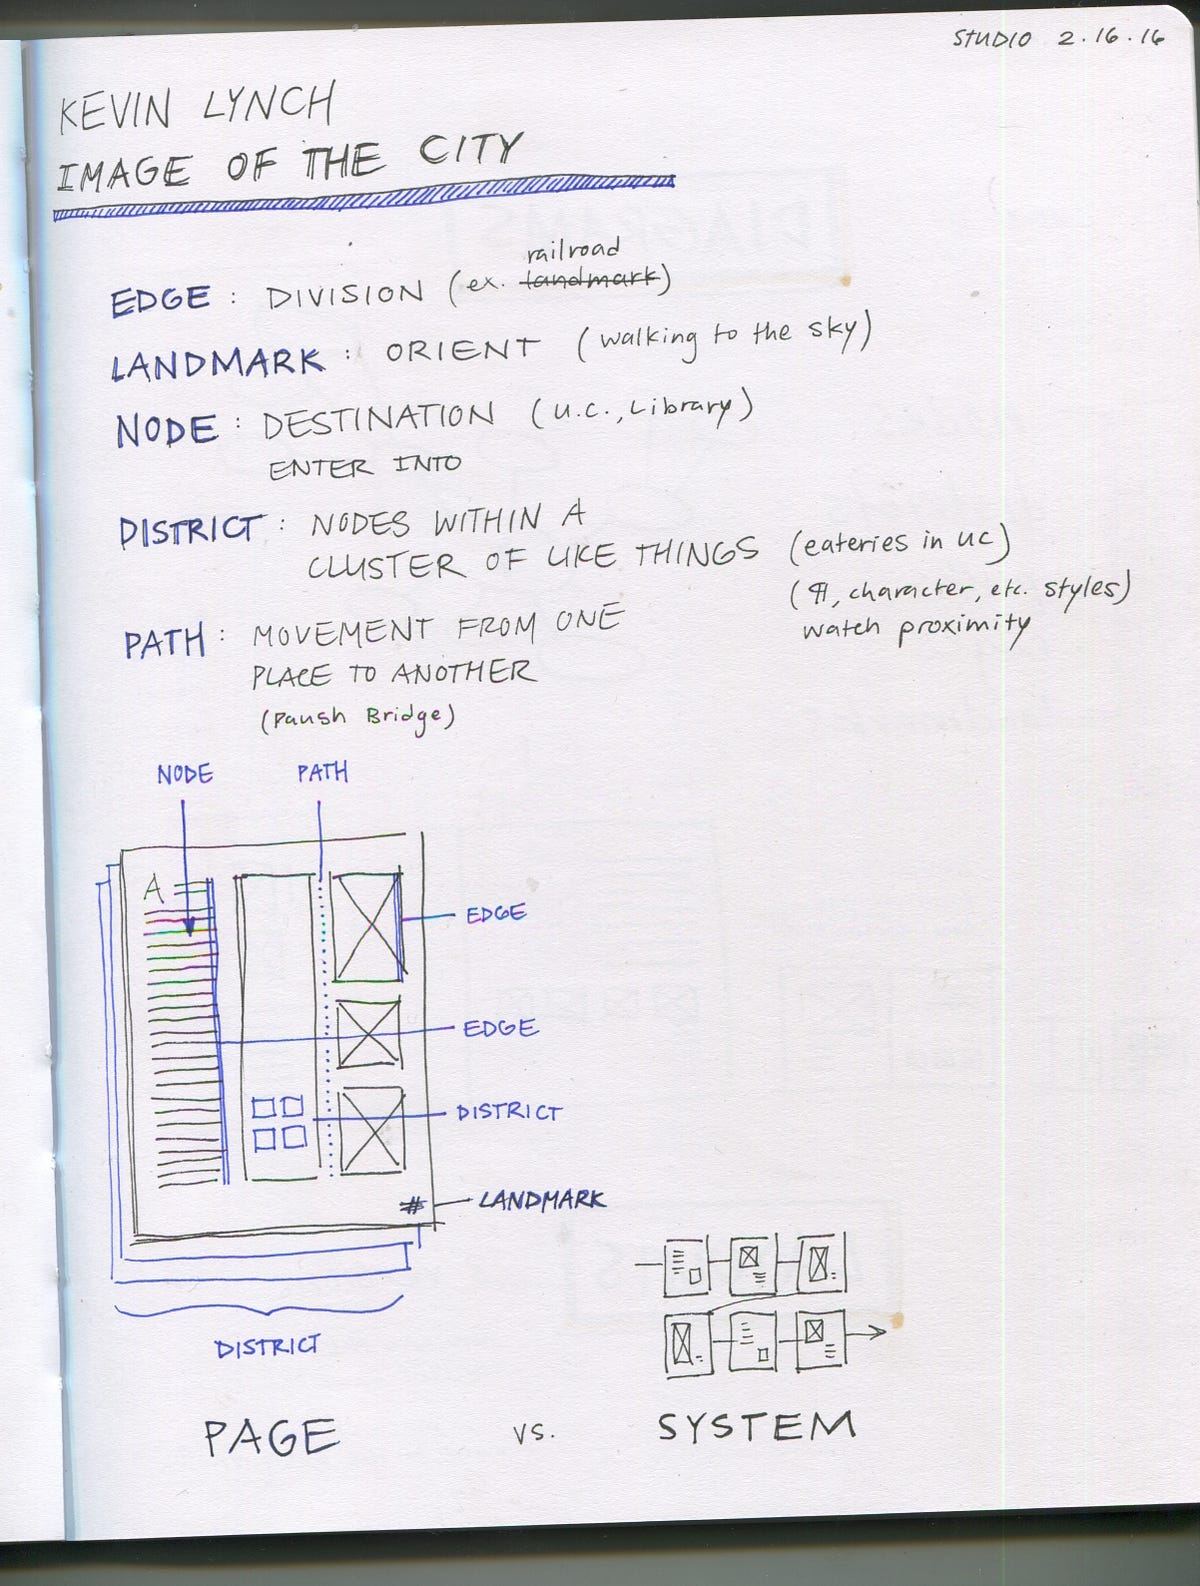 STUDIO 2.16.16
KEVIN LYNCH
IMAGE OF THE CITY
railroad
EDGE : DIVISION (ex. landmark)
LANDMARK : ORIENT (walking to the sky)
NODE : DESTINATION (U.C., Library)
ENTER INTO
DISTRICT : NODES WITHIN A
CLUSTER OF LIKE THINGS (eateries in UC)
(¶, character, etc. styles)
watch proximity
PATH : MOVEMENT FROM ONE
PLACE TO ANOTHER
(Paush Bridge)
NODE PATH
A
EDGE
EDGE
DISTRICT
# LANDMARK
DISTRICT
PAGE vs. SYSTEM